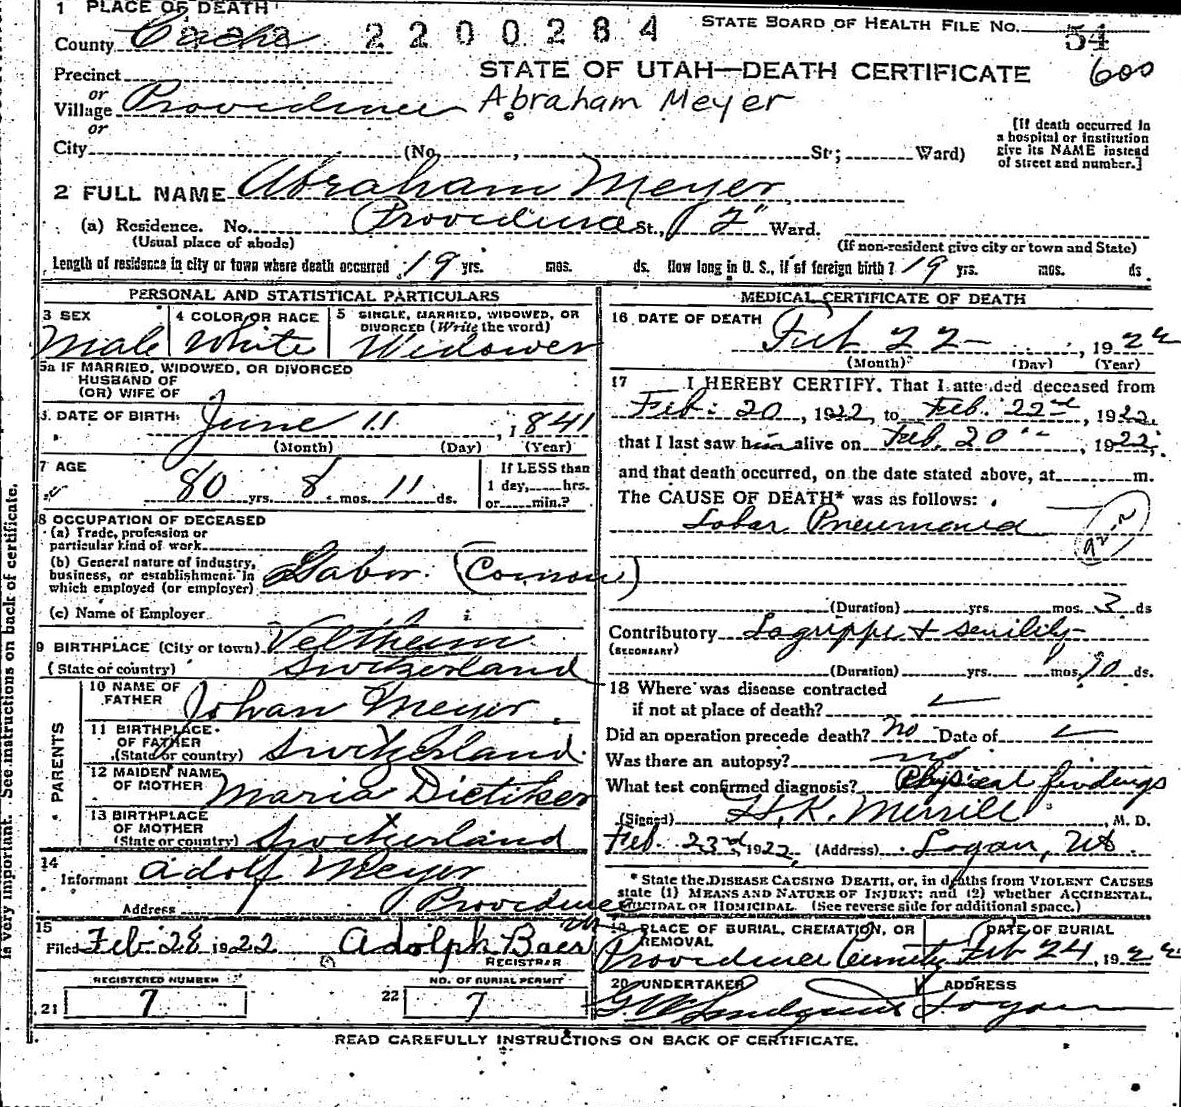 1 PLACE OF DEATH
County Cache 2200284 STATE BOARD OF HEALTH FILE NO. 54
STATE OF UTAH—DEATH CERTIFICATE 600
Precinct
or
Village Providence Abraham Meyer
or
City (No. , St; Ward)
[If death occurred in
a hospital or institution
give its NAME instead
of street and number.]
2 FULL NAME Abraham Meyer
(a) Residence. No. Providence St., 2" Ward.
(Usual place of abode) (If non-resident give city or town and State)
Length of residence in city or town where death occurred 19 yrs. mos. ds. How long in U. S., if of foreign birth? 19 yrs. mos. ds.
PERSONAL AND STATISTICAL PARTICULARS
3 SEX 4 COLOR OR RACE 5 SINGLE, MARRIED, WIDOWED, OR
DIVORCED (Write the word)
Male White Widower
5a IF MARRIED, WIDOWED, OR DIVORCED
HUSBAND OF
(OR) WIFE OF
6. DATE OF BIRTH: June 11, 1841
(Month) (Day) (Year)
7 AGE 80 yrs. 8 mos. 11 ds.
If LESS than
1 day, hrs.
or min.?
8 OCCUPATION OF DECEASED
(a) Trade, profession or
particular kind of work
(b) General nature of industry,
business, or establishment in
which employed (or employer) Labor. (Comon)
(c) Name of Employer
9 BIRTHPLACE (City or town) Veltheim
(State or country) Switzerland
PARENTS
10 NAME OF
FATHER Johan Meyer
11 BIRTHPLACE
OF FATHER
(State or country) Switzerland
12 MAIDEN NAME
OF MOTHER Maria Dietiker
13 BIRTHPLACE
OF MOTHER
(State or country) Switzerland
14
Informant Adolf Meyer
Address Providence
15
Filed Feb 28 1922 Adolph Baer
REGISTRAR
REGISTERED NUMBER NO. OF BURIAL PERMIT
21 7 22 7
MEDICAL CERTIFICATE OF DEATH
16 DATE OF DEATH Feb 22, 1922
(Month) (Day) (Year)
17 I HEREBY CERTIFY. That I attended deceased from
Feb. 20, 1922, to Feb. 22nd, 1922,
that I last saw him alive on Feb. 20, 1922,
and that death occurred, on the date stated above, at m.
The CAUSE OF DEATH* was as follows:
Lobar Pneumonia
(Duration) yrs. mos. 3 ds
Contributory Lagrippe & senility
(SECONDARY)
(Duration) yrs. mos. 10 ds.
18 Where was disease contracted
if not at place of death?
Did an operation precede death? no Date of
Was there an autopsy? no
What test confirmed diagnosis? Physical findings
(Signed) H. K. Merrill, M. D.
Feb. 23rd, 1922, (Address) Logan, Ut.
* State the DISEASE CAUSING DEATH, or, in deaths from VIOLENT CAUSES
state (1) MEANS AND NATURE OF INJURY; and (2) whether ACCIDENTAL,
SUICIDAL OR HOMICIDAL. (See reverse side for additional space.)
19 PLACE OF BURIAL, CREMATION, OR
REMOVAL DATE OF BURIAL
Providence Cemetery Feb 24, 1922
20 UNDERTAKER ADDRESS
G W Lindquist Logan
READ CAREFULLY INSTRUCTIONS ON BACK OF CERTIFICATE.
is very important. See instructions on back of certificate.